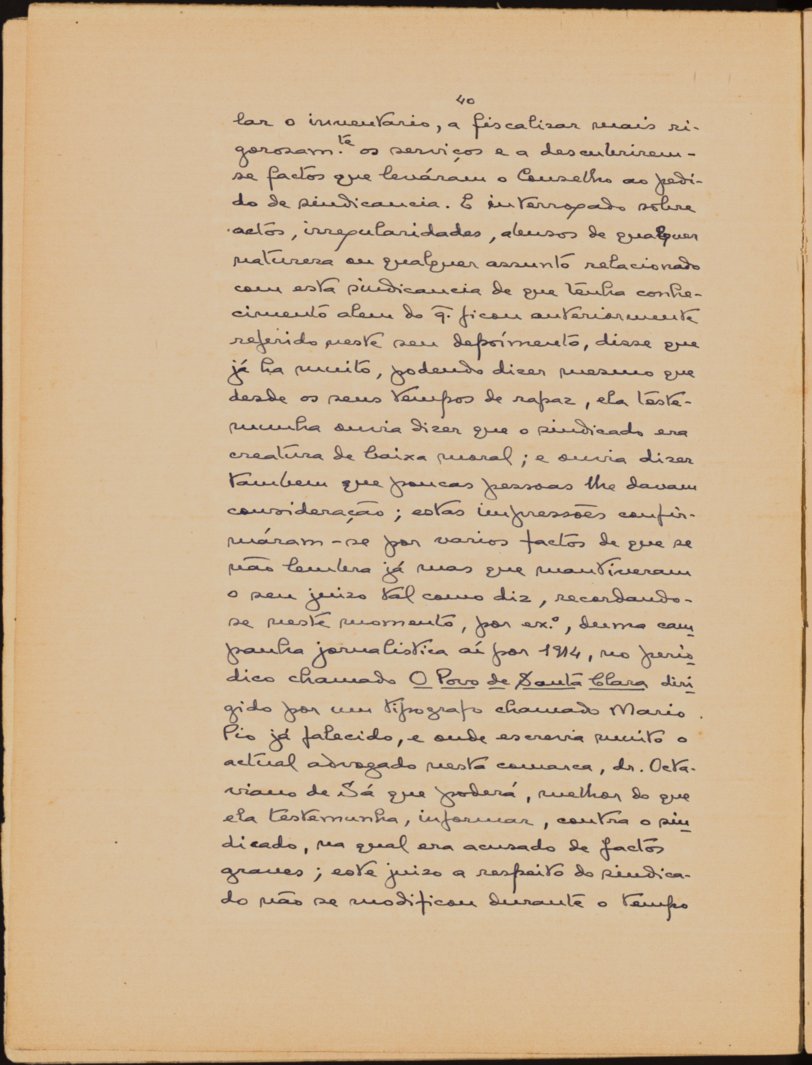 40
lar o inventario, a fiscalisar mais ri-
gorosam.te os serviços e a descubrirem-
se factos que leváram o Conselho ao pedi-
do de sindicancia. E interrogado sobre
actos, irregularidades, abusos de qualquer
natureza ou qualquer assunto relacionado
com esta sindicancia de que tenha conhe-
cimento alem do q. ficou anteriormente
referido neste seu depoímento, disse que
já ha muito, podendo dizer mesmo que
desde os seus tempos de rapaz, ela teste-
munha ouvia dizer que o sindicado era
creatura de baixa moral; e ouvia dizer
tambem que poucas pessoas lhe davam
consideração; estas impressões confir-
máram-se por varios factos de que se
não lembra já mas que mantiveram
o seu juizo tal como diz, recordando-
se neste momento, por ex.º, duma cam
panha jornalistica aí por 1914, no perió
dico chamado O Povo de Santa Clara diri
gido por um tipografo chamado Mario
Pio já falecido, e onde escrevia muito o
actual advogado nesta comarca, dr. Octa-
viano de Sá que poderá, melhor do que
ela testemunha, informar, contra o sin
dicado, na qual era acusado de factos
graves; este juizo a respeito do sindica-
do não se modificou durante o tempo